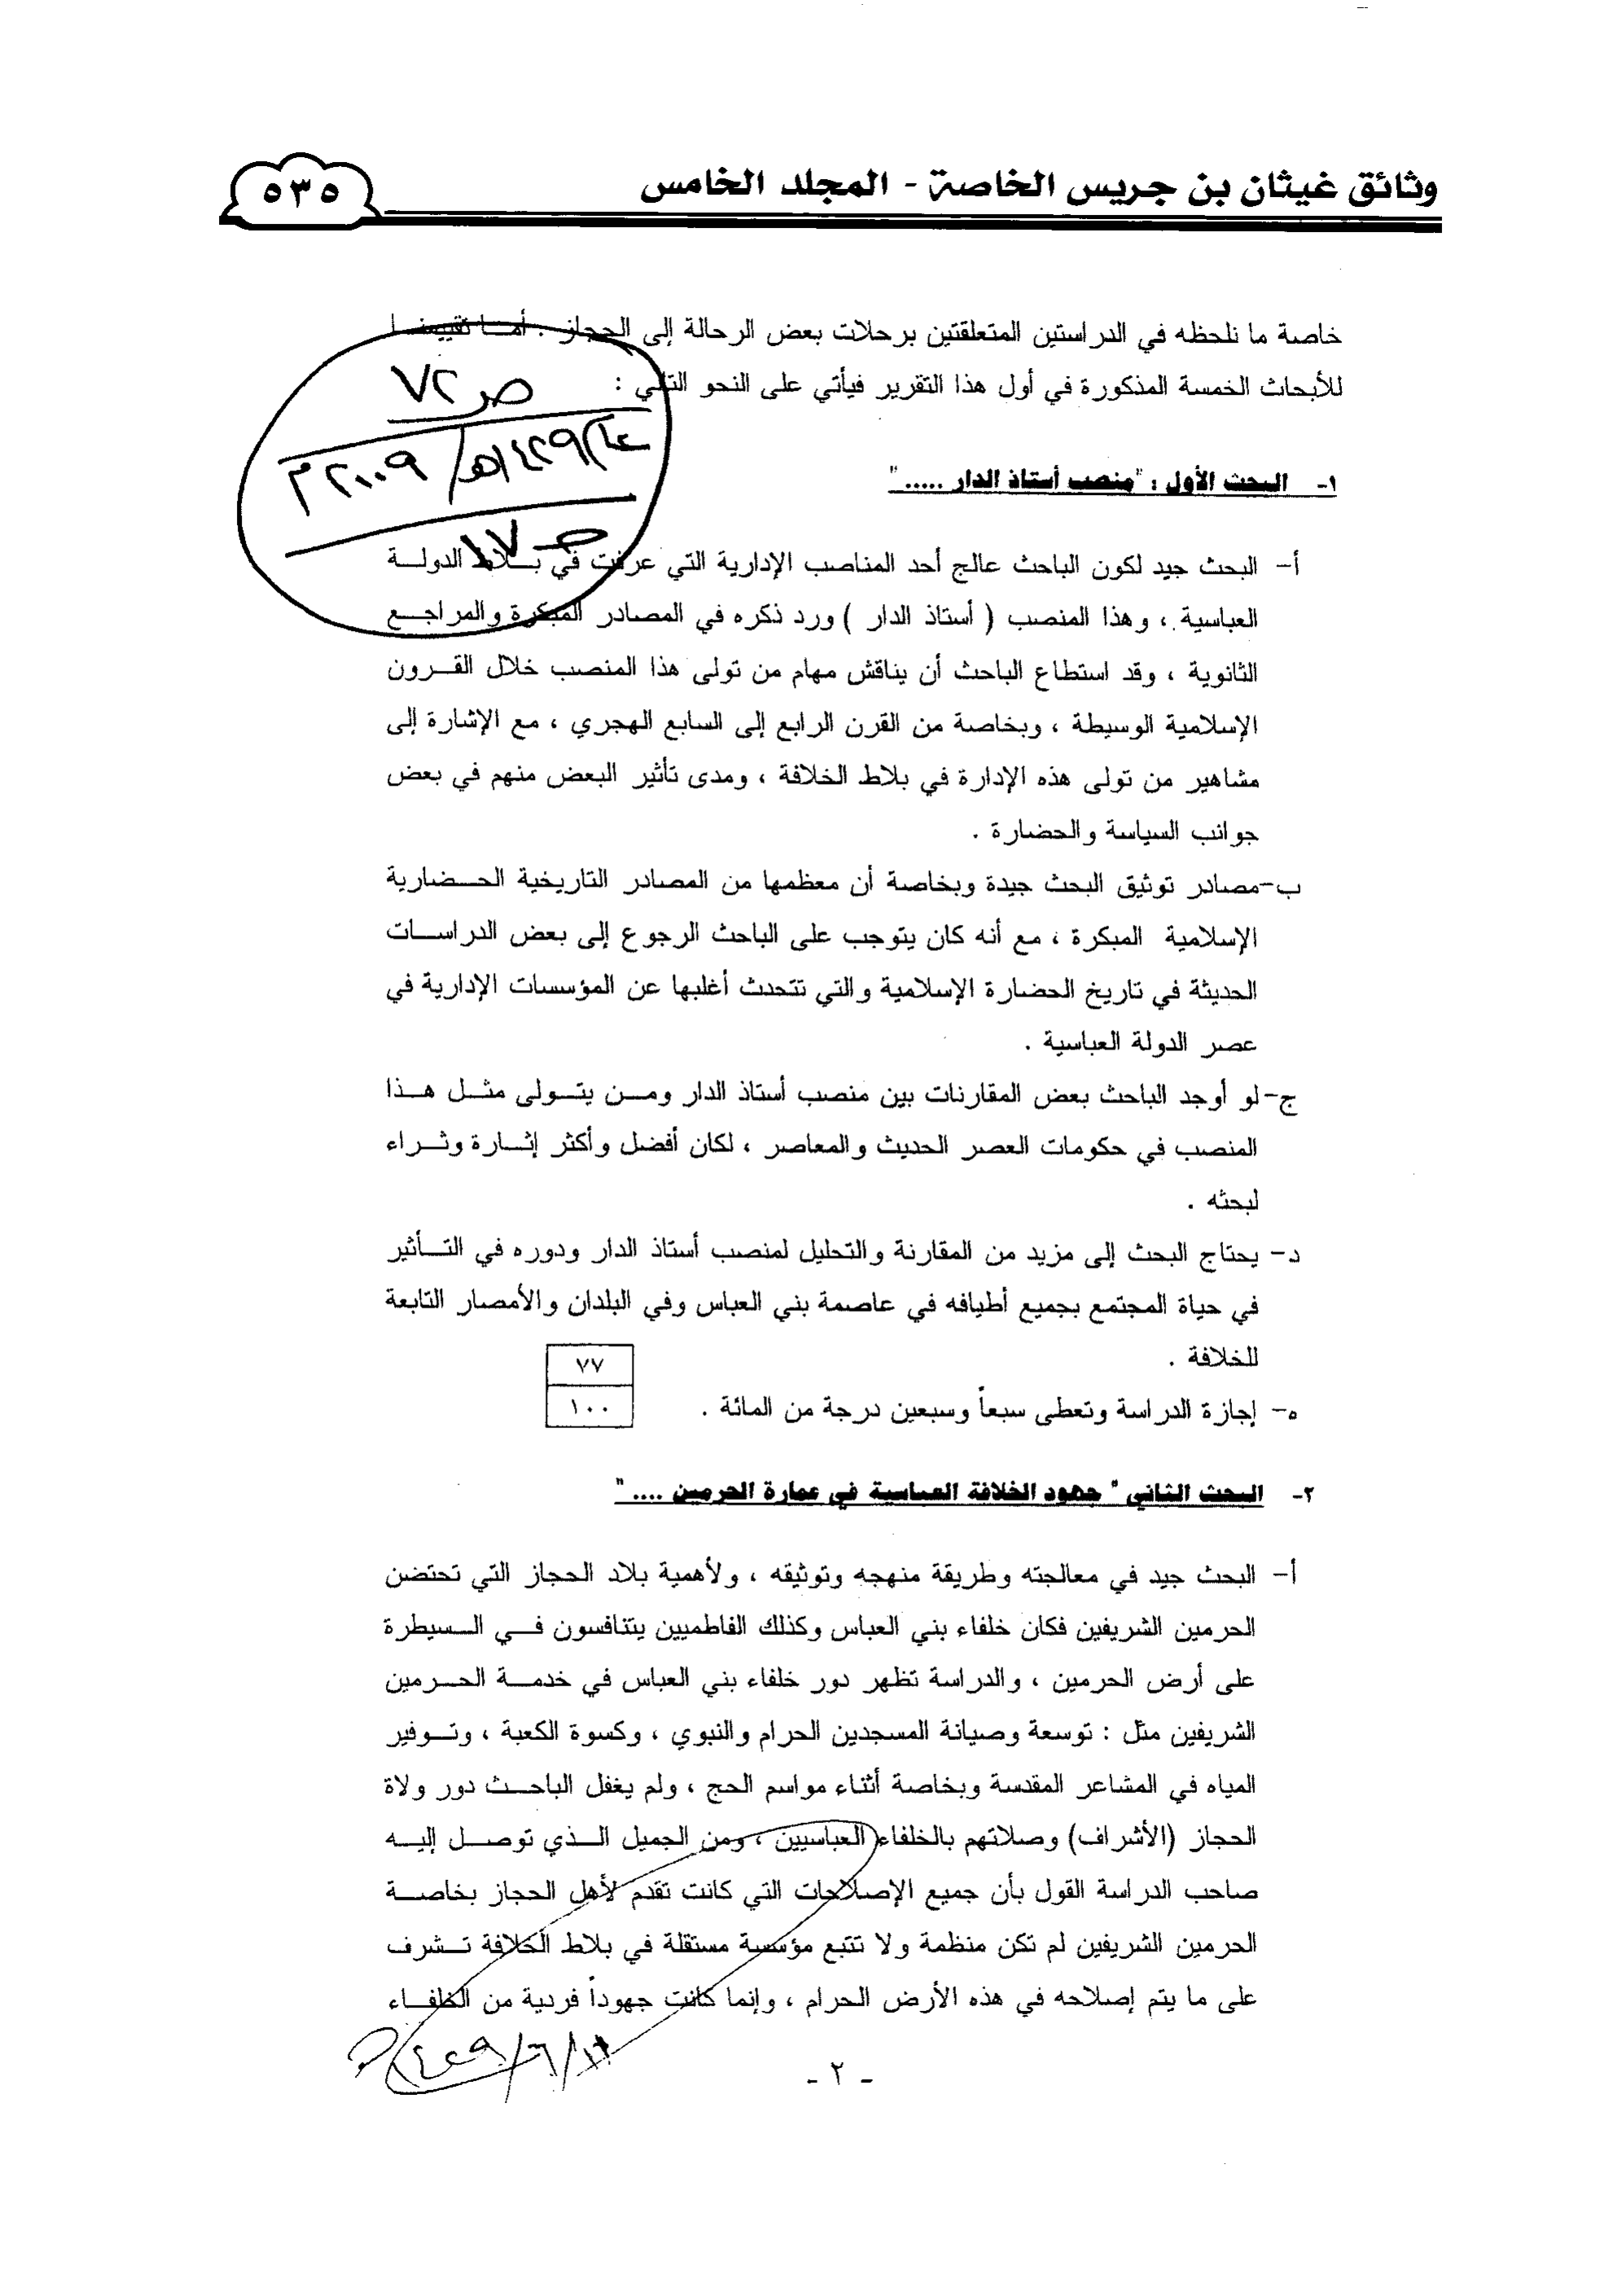 وثائق غيثان بن جريس الخاصة - المجلد الخامس
٥٣٥
خاصة ما نلحظه في الدراستين المتعلقتين برحلات بعض الرحالة إلى الحجاز . أمــا تقييمنــا
للأبحاث الخمسة المذكورة في أول هذا التقرير فيأتي على النحو التالي :
ص ٧٢
١٤٢٩هـ/ ٢٠٠٩م
ص ١٧
١- البحث الأول : "منصب أستاذ الدار ....."
أ- البحث جيد لكون الباحث عالج أحد المناصب الإدارية التي عرفت في بــلاط الدولــة
العباسية ، وهذا المنصب ( أستاذ الدار ) ورد ذكره في المصادر المبكرة والمراجــع
الثانوية ، وقد استطاع الباحث أن يناقش مهام من تولى هذا المنصب خلال القــرون
الإسلامية الوسيطة ، وبخاصة من القرن الرابع إلى السابع الهجري ، مع الإشارة إلى
مشاهير من تولى هذه الإدارة في بلاط الخلافة ، ومدى تأثير البعض منهم في بعض
جوانب السياسة والحضارة .
ب-مصادر توثيق البحث جيدة وبخاصة أن معظمها من المصادر التاريخية الحــضارية
الإسلامية المبكرة ، مع أنه كان يتوجب على الباحث الرجوع إلى بعض الدراســات
الحديثة في تاريخ الحضارة الإسلامية والتي تتحدث أغلبها عن المؤسسات الإدارية في
عصر الدولة العباسية .
ج-لو أوجد الباحث بعض المقارنات بين منصب أستاذ الدار ومــن يتــولى مثــل هــذا
المنصب في حكومات العصر الحديث والمعاصر ، لكان أفضل وأكثر إثــارة وثــراء
لبحثه .
د- يحتاج البحث إلى مزيد من المقارنة والتحليل لمنصب أستاذ الدار ودوره في التــأثير
في حياة المجتمع بجميع أطيافه في عاصمة بني العباس وفي البلدان والأمصار التابعة
للخلافة .
٧٧
ه- إجازة الدراسة وتعطى سبعاً وسبعين درجة من المائة .
١٠٠
٢- البحث الثاني " جهود الخلافة العباسية في عمارة الحرمين ...."
أ- البحث جيد في معالجته وطريقة منهجه وتوثيقه ، ولأهمية بلاد الحجاز التي تحتضن
الحرمين الشريفين فكان خلفاء بني العباس وكذلك الفاطميين يتنافسون فــي الــسيطرة
على أرض الحرمين ، والدراسة تظهر دور خلفاء بني العباس في خدمــة الحــرمين
الشريفين مثل : توسعة وصيانة المسجدين الحرام والنبوي ، وكسوة الكعبة ، وتــوفير
المياه في المشاعر المقدسة وبخاصة أثناء مواسم الحج ، ولم يغفل الباحــث دور ولاة
الحجاز (الأشراف) وصلاتهم بالخلفاء العباسيين ، ومن الجميل الــذي توصــل إليــه
صاحب الدراسة القول بأن جميع الإصلاحات التي كانت تقدم لأهل الحجاز بخاصــة
الحرمين الشريفين لم تكن منظمة ولا تتبع مؤسسة مستقلة في بلاط الخلافة تــشرف
على ما يتم إصلاحه في هذه الأرض الحرام ، وإنما كانت جهوداً فردية من الخلفــاء
- ٢ -